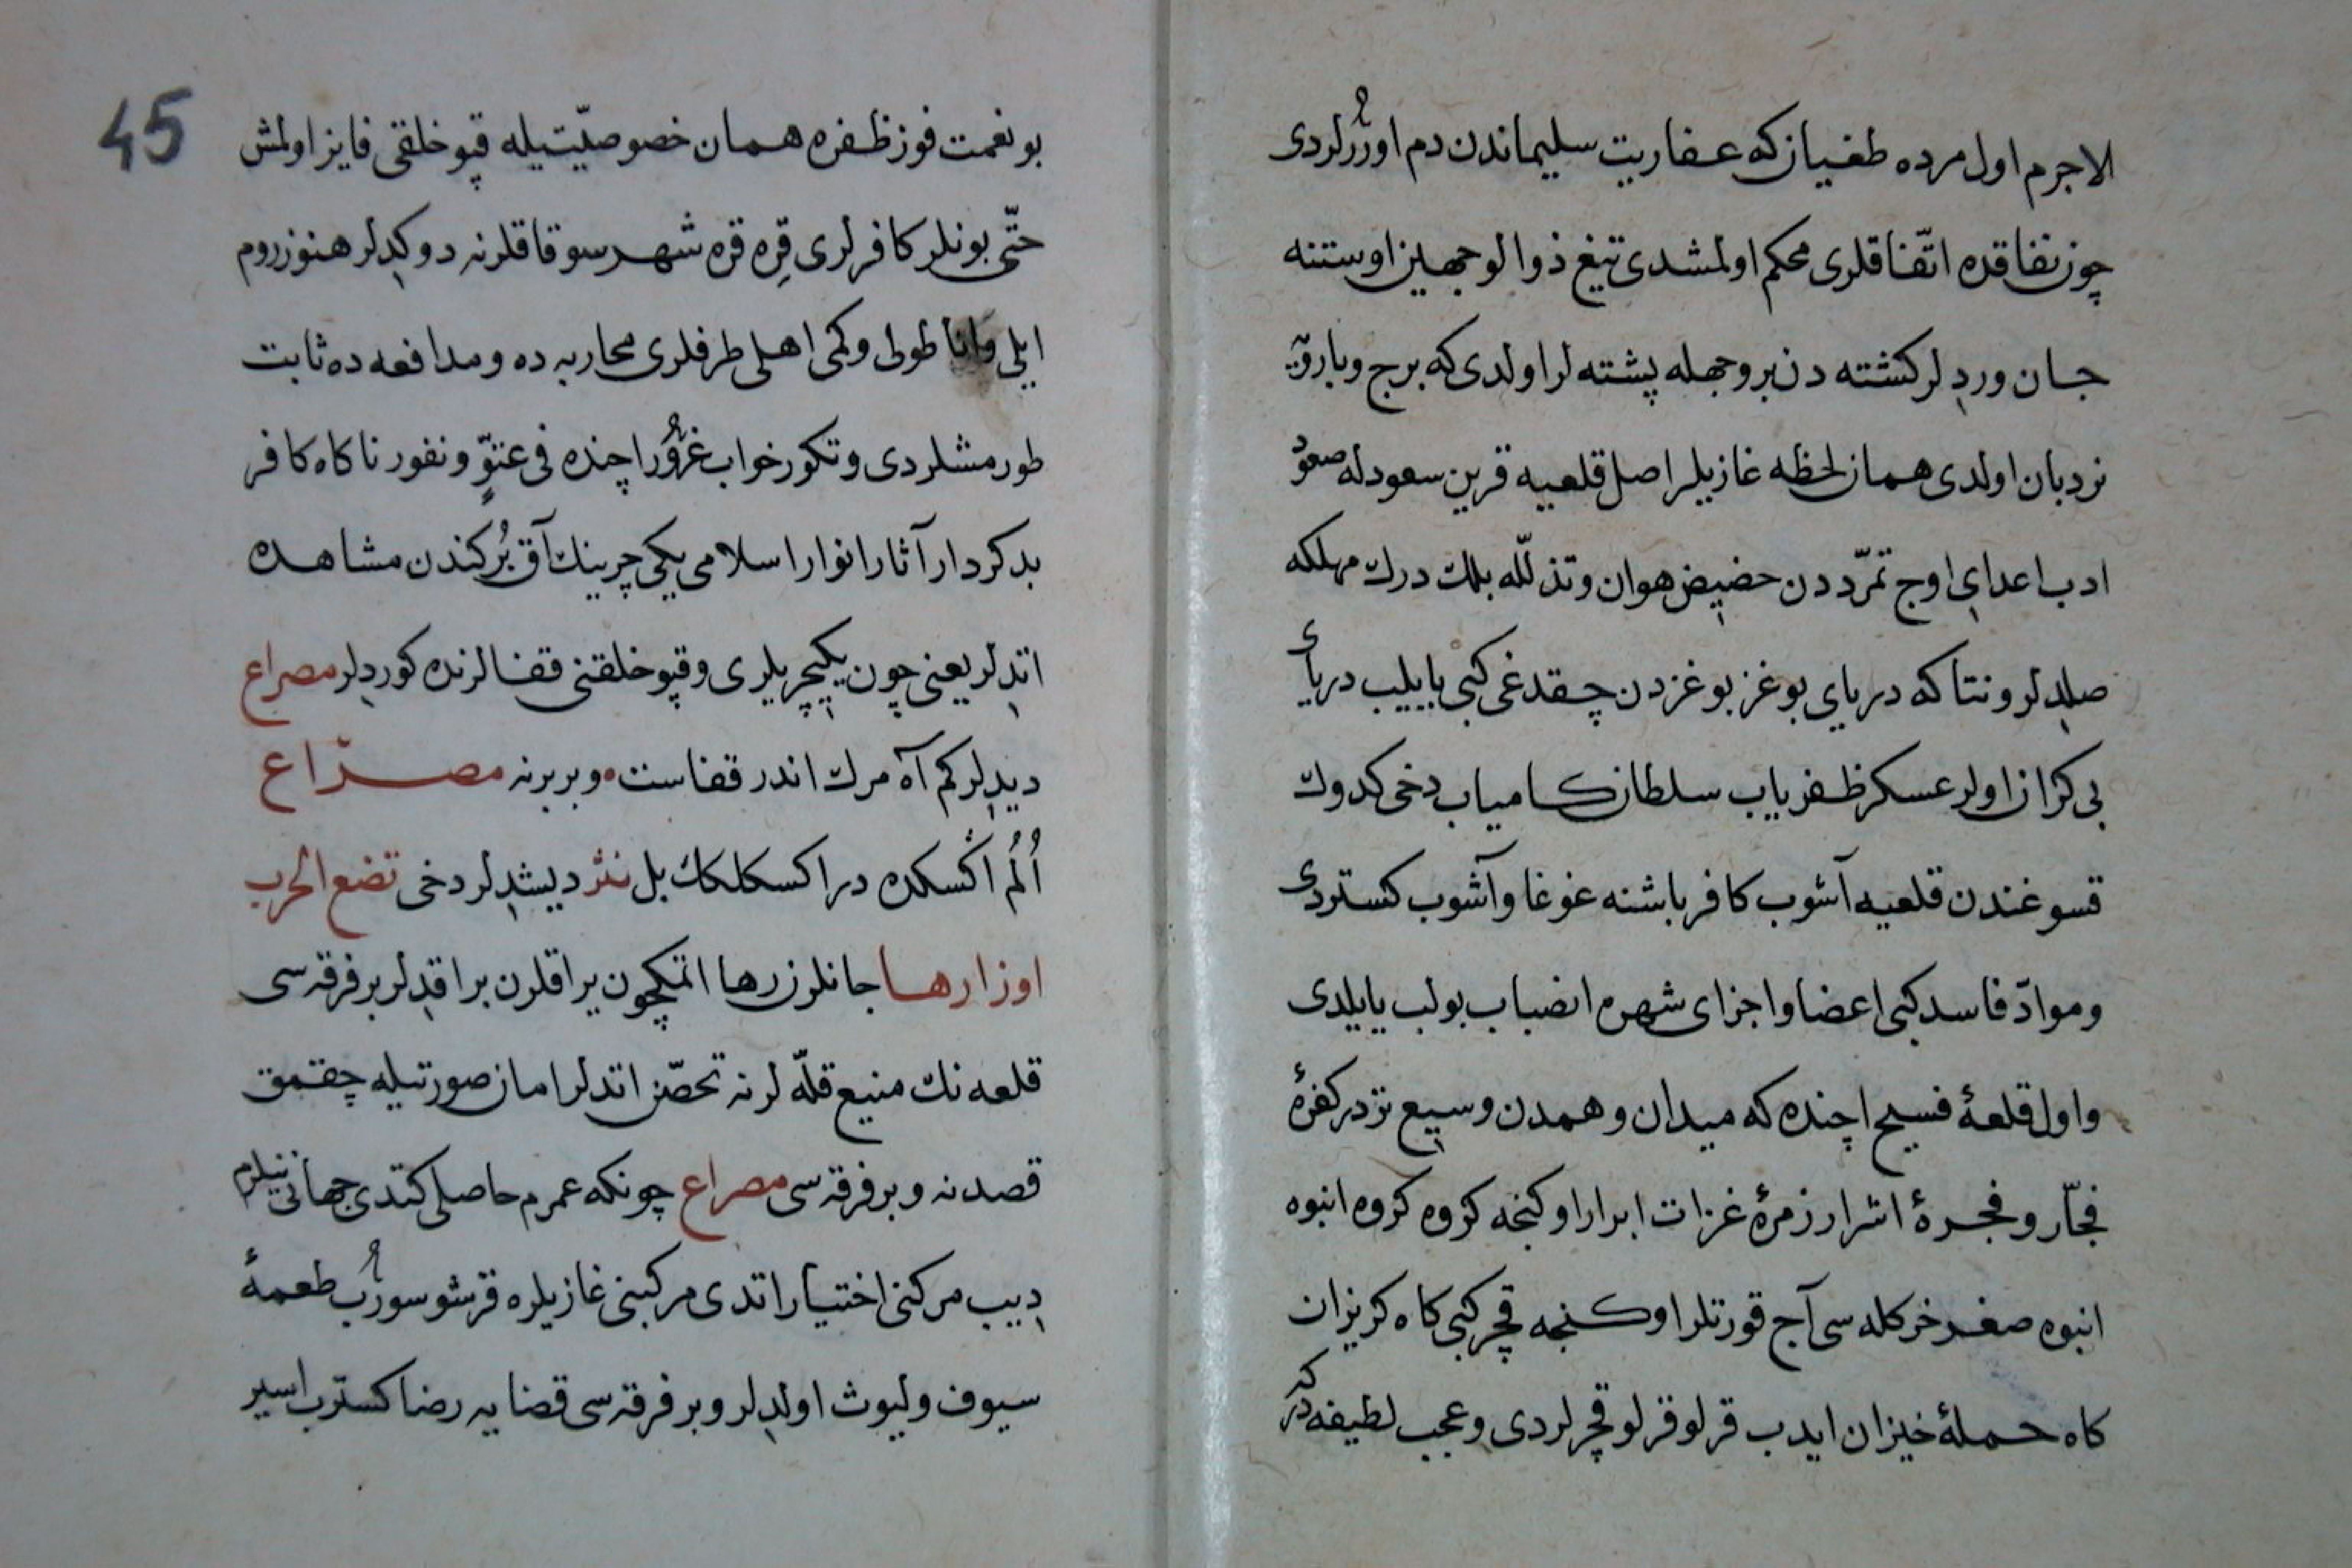 لاجرم اول مرده طغیان که عفاریت سلیماندن دم اوررلردی
چون نفاقده اتّفاقلری محکم اولمشدی تیغ ذوالوجهین اوستنه
جان وردلر کشته دن بر وجهله پشته لر اولدی که برج و بارویه
نردبان اولدی همان لحظه غازیلر اصل قلعه‌یه قرین سعود له صعود
ادب اعدای اوج تمرّددن حضیض هوان و تذلّله بلك درك مهلکه
صلدلر ونتاکه دریای بوغز بوغزدن چقدغی کبی یاییلب دریای
بی کران اولر عسکر ظفریاب سلطان کامیاب دخی کدوك
قسوغندن قلعیه آشوب کافر باشنه غوغا و آشوب کستردی
و موادّ فاسد کبی اعضا و اجزای شهره انصباب بولب یایلدی
و اول قلعهٔ فسیح اچنده که میدان وهمدن وسیع تردر کفرهٔ
فجّار و فجرهٔ اشرار زمرهٔ غزات ابرار اوکنجه کروه کروه انبوه
انبوه صغر خر کله سی آج قورتلر اوکنجه قچر کبی کاه کریزان
کاه حملهٔ خیزان ایدب قرلو قرلو قچرلردی و عجب لطیفه در که
45
بو نعمت فوز ظفره همان خصوصیّتیله قپو خلقی فایز اولمش
حتّی بونلر کافرلری قره قره شهر سوقاقلرنه دوکدلر هنوز روم
ایلی واناطولی و کمی اهلی طرفلری محاربه ده و مدافعه ده ثابت
طورمشلردی و تکور خواب غرور اچنده فی عتوّ و نفور ناکاه کافر
بدکردار آثار انوار اسلامی یکیچرینك آق برکندن مشاهده
اتدلر یعنی چون یکیچریلری و قپو خلقنی قفالرنده کوردلر مصراع
دیدلر کم آه مرك اندر قفاست ٠ و بر برنه مصراع
اُلُم اکسکده در اکسکلکك بل نثر دیشدلر دخی تضع الحرب
اوزارها جانلرن رها اتمکچون یراقلرن براقدلر بر فرقه سی
قلعه نك منیع قلّه لرنه تحصّن اتدلر امان صورتیله چقمق
قصدنه و بر فرقه سی مصراع چونکه عمرم حاصلی کتدی جهانی نیلرم
دییب مرکنی اختیار اتدی مرکبنی غازیلره قرشو سورب طعمهٔ
سیوف و لیوث اولدلر و بر فرقه سی قضایه رضا کسترب اسیر